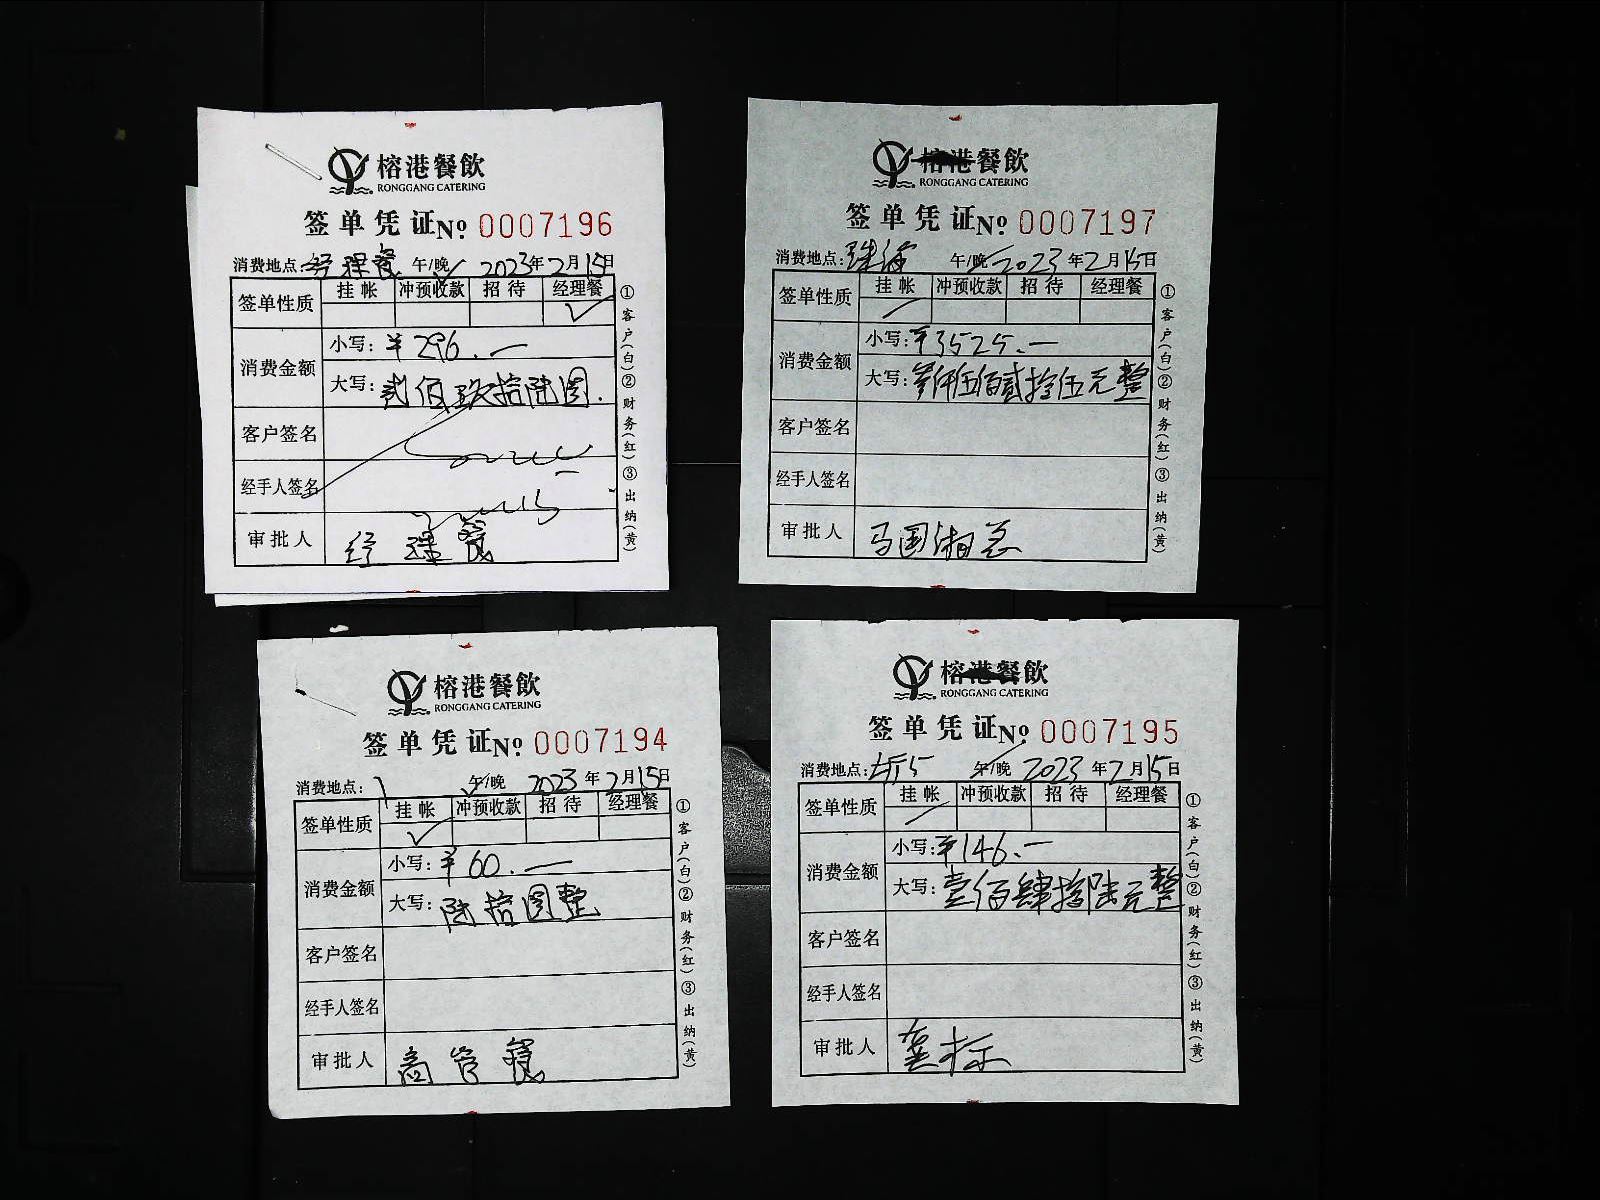 榕港餐飲
RONGGANG CATERING
签单凭证 № 0007196
消费地点：经理餐 午/晚 2023年2月15日
签单性质 挂帐 冲预收款 招待 经理餐
消费金额
小写：¥296.—
大写：贰佰玖拾陆圆.
客户签名
经手人签名
审批人 经理餐
①客户(白)②财务(红)③出纳(黄)
榕港餐飲
RONGGANG CATERING
签单凭证 № 0007197
消费地点：珠海 午/晚 2023年2月15日
签单性质 挂帐 冲预收款 招待 经理餐
消费金额
小写：¥3525.—
大写：叁仟伍佰贰拾伍元整
客户签名
经手人签名
审批人 马国湘总
①客户(白)②财务(红)③出纳(黄)
榕港餐飲
RONGGANG CATERING
签单凭证 № 0007194
消费地点： 午/晚 2023年2月15日
签单性质 挂帐 冲预收款 招待 经理餐
消费金额
小写：¥60.—
大写：陆拾圆整
客户签名
经手人签名
审批人 高管餐
①客户(白)②财务(红)③出纳(黄)
榕港餐飲
RONGGANG CATERING
签单凭证 № 0007195
消费地点： 午/晚 2023年2月15日
签单性质 挂帐 冲预收款 招待 经理餐
消费金额
小写：¥146.—
大写：壹佰肆拾陆元整
客户签名
经手人签名
审批人
①客户(白)②财务(红)③出纳(黄)